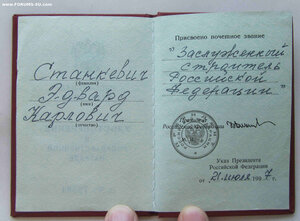 www.FORUMS-SU.com
Станкевич
(фамилия)
Эдвард
(имя)
Карлович
(отчество)
Присвоено почетное звание
"Заслуженный
строитель
Российской
Федерации"
Российской Федерации
Указ Президента
Российской Федерации
от 21 июля 1997 г.